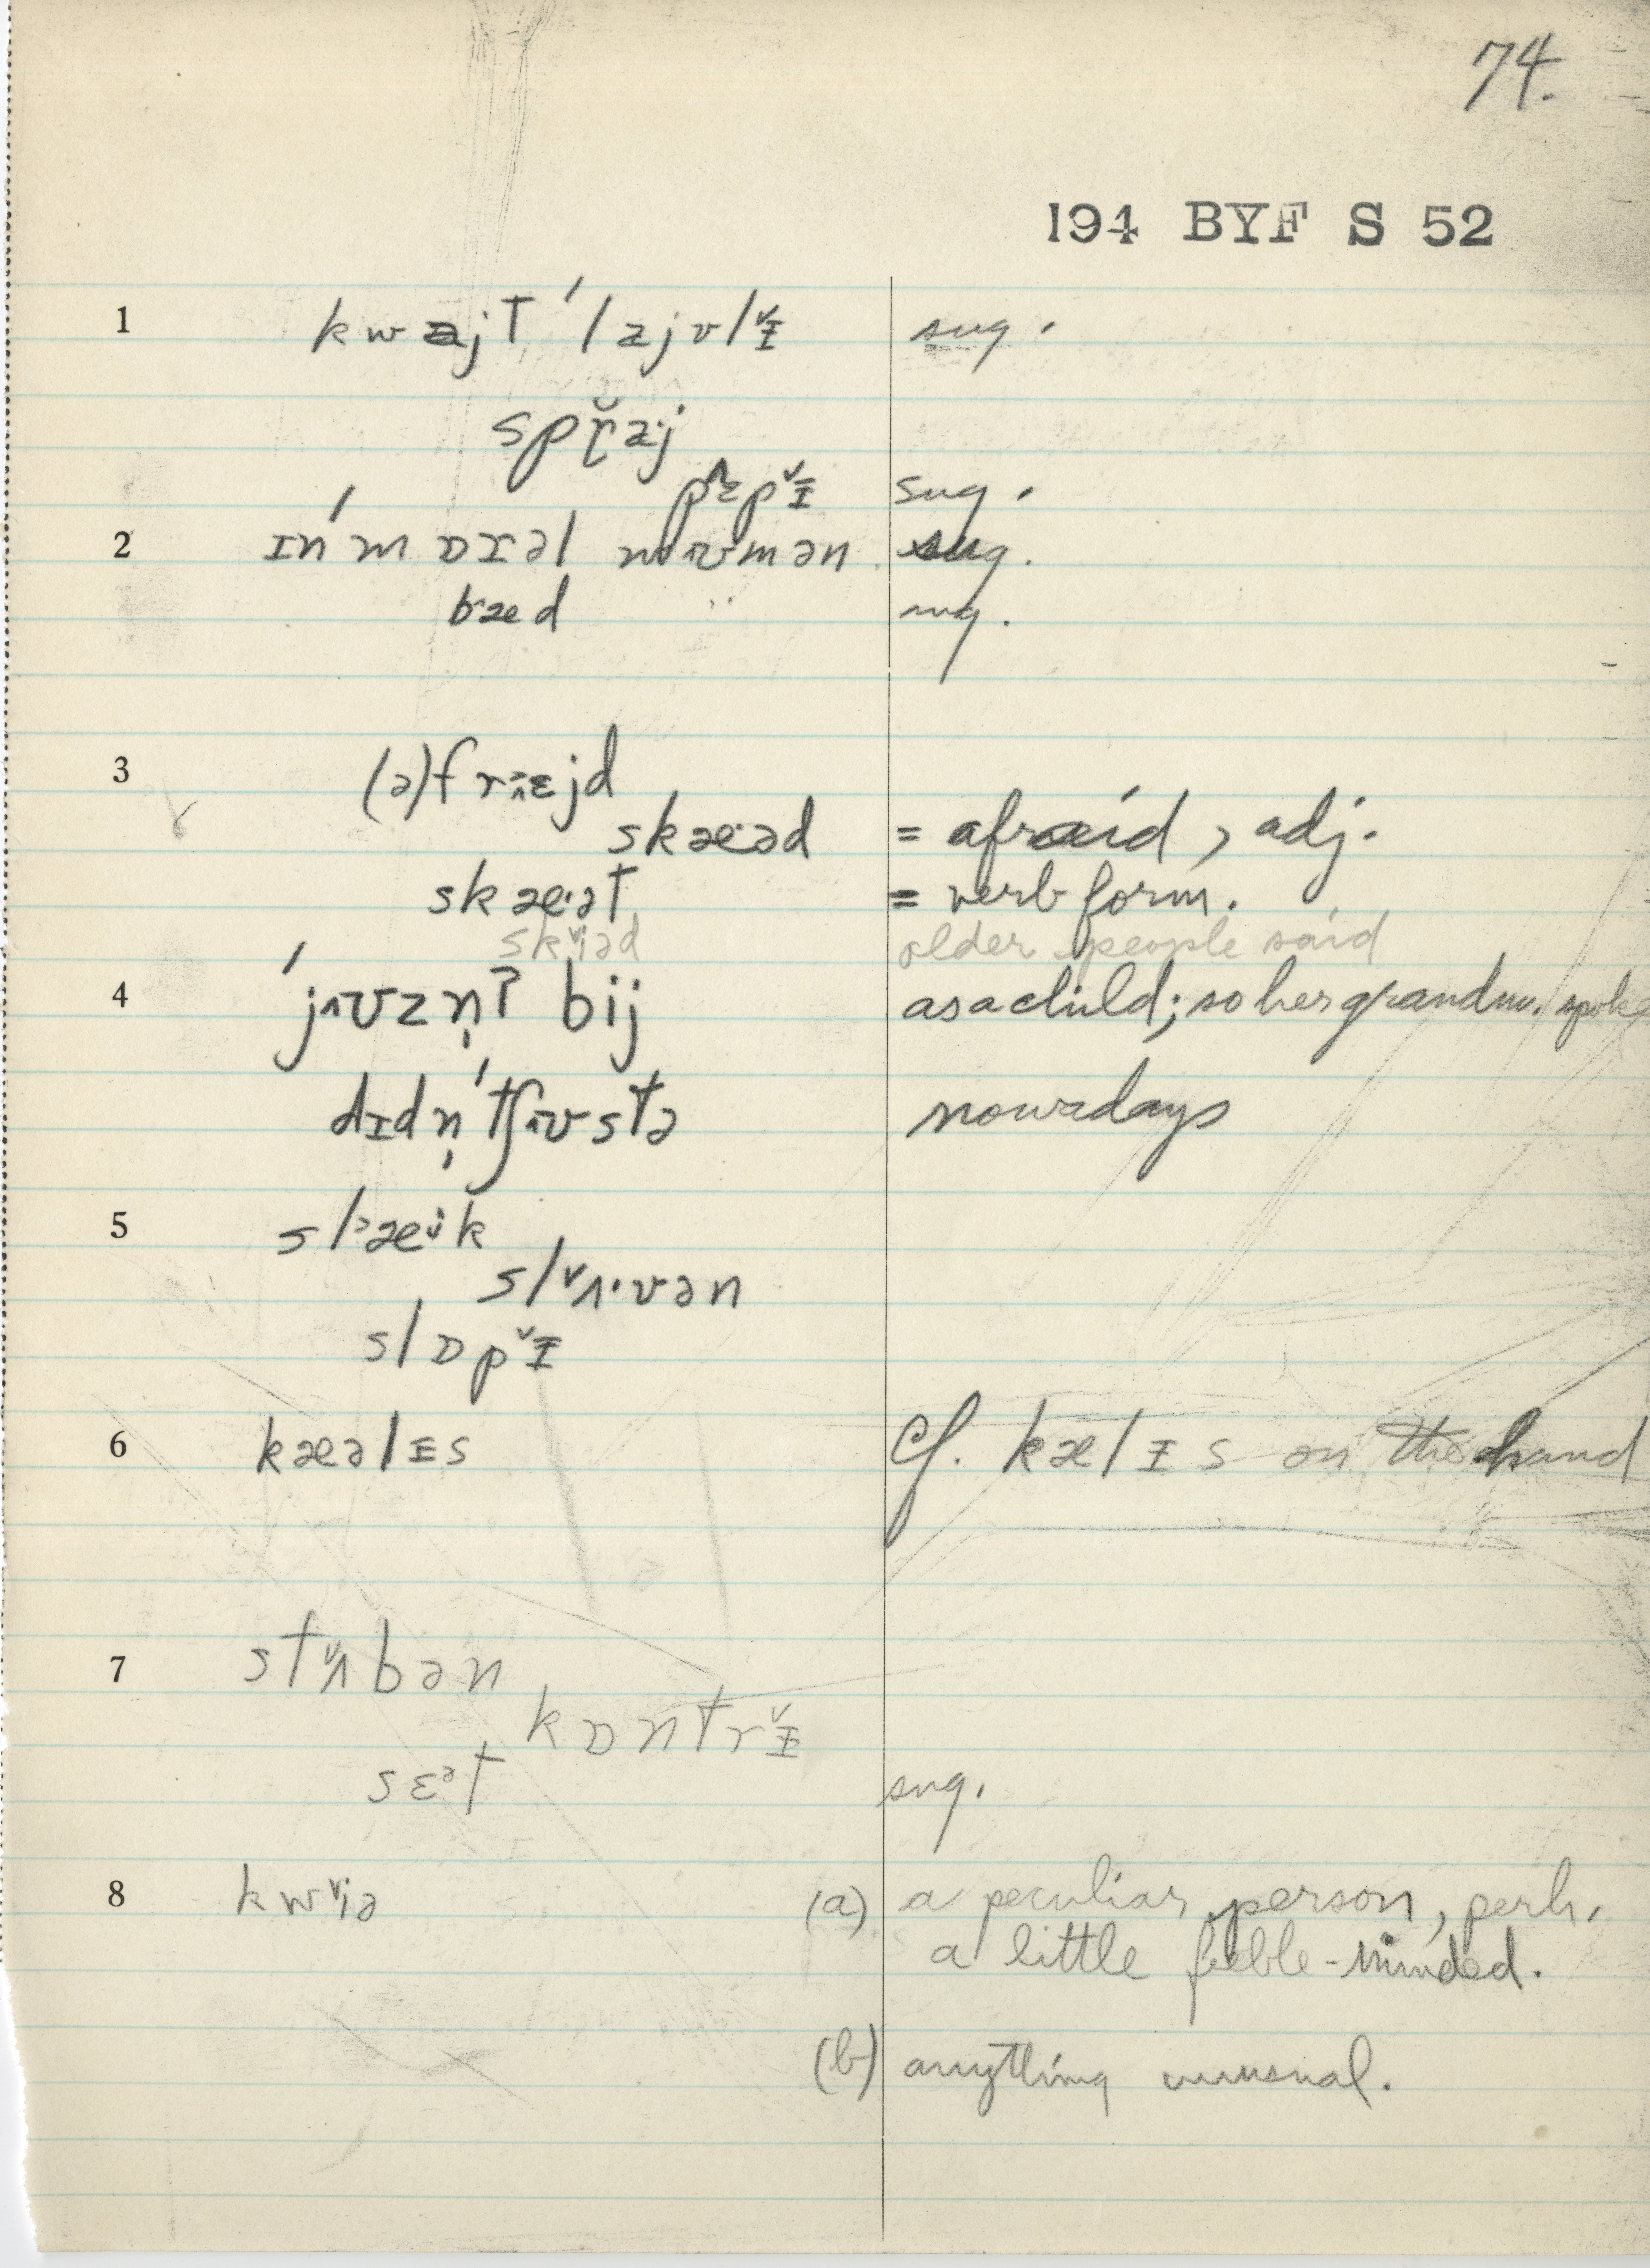 74.
194 BYF S 52
1 kwajt ˈlajvlɪ̵̌ sug.
spɽ̆a·j
pɛ̂pɪ̵̌ sug.
2 ɪn ˈmɒɪəl wʊmən sug.
bæd sug.
3 (ə)frɛjd
skæ·əd = afraid, adj.
skæ·ət = verb form.
skiəd older people said
4 ˈjʊzn̩ʔ bij as a child; so her grandm. spoke
dɪdn̩ ˈtʃʊstə nowadays
5 slæik
slʌ·vən
slɒpɪ̵̌
6 kæəlɪ̵s Cf. kælɪ̵s on the hand
7 stʌ̌bən
kɒntrɪ̵̌
sɛᵊt sug.
8 kwiə (a) a peculiar person, perh.
a little feeble-minded.
(b) anything unusual.